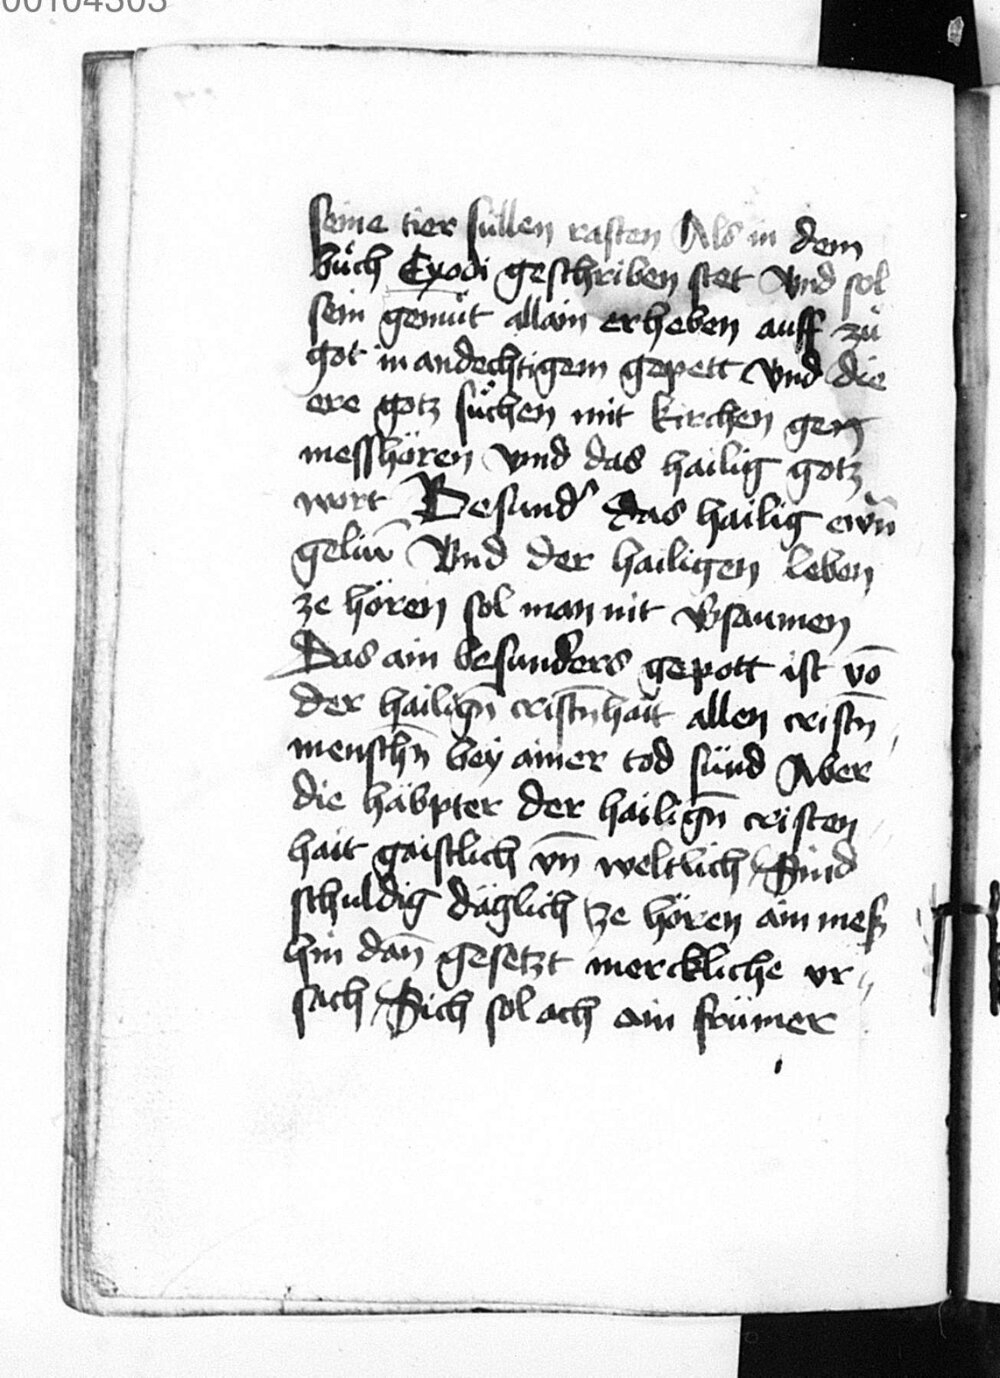 00104303
seine tier süllen rasten Als in dem
bůch Exodi geschriben stet Vnd sol
sein gemüt allain erheben auff zů
got in andechtigem gepett Vnd die
ere gotz sůchen mit kirchen gen
messhören vnd das hailig gotz
wort Besund' das hailig ewn̄
geliū Vnd der hailigen leben
ze hören sol man nit v'saumen
Das ain besunders gepott ist vō
der hailign̄ cristn̄hait allen cristn̄
menschn̄ bey ainer tod sünd Aber
die häbpter der hailign̄ cristen
hait gaistlich vn̄ weltlich Sind
schuldig däglich ze hören ain meß
hin dan̄ gesetzt merckliche vr
sach Sich sol ach ain frümer